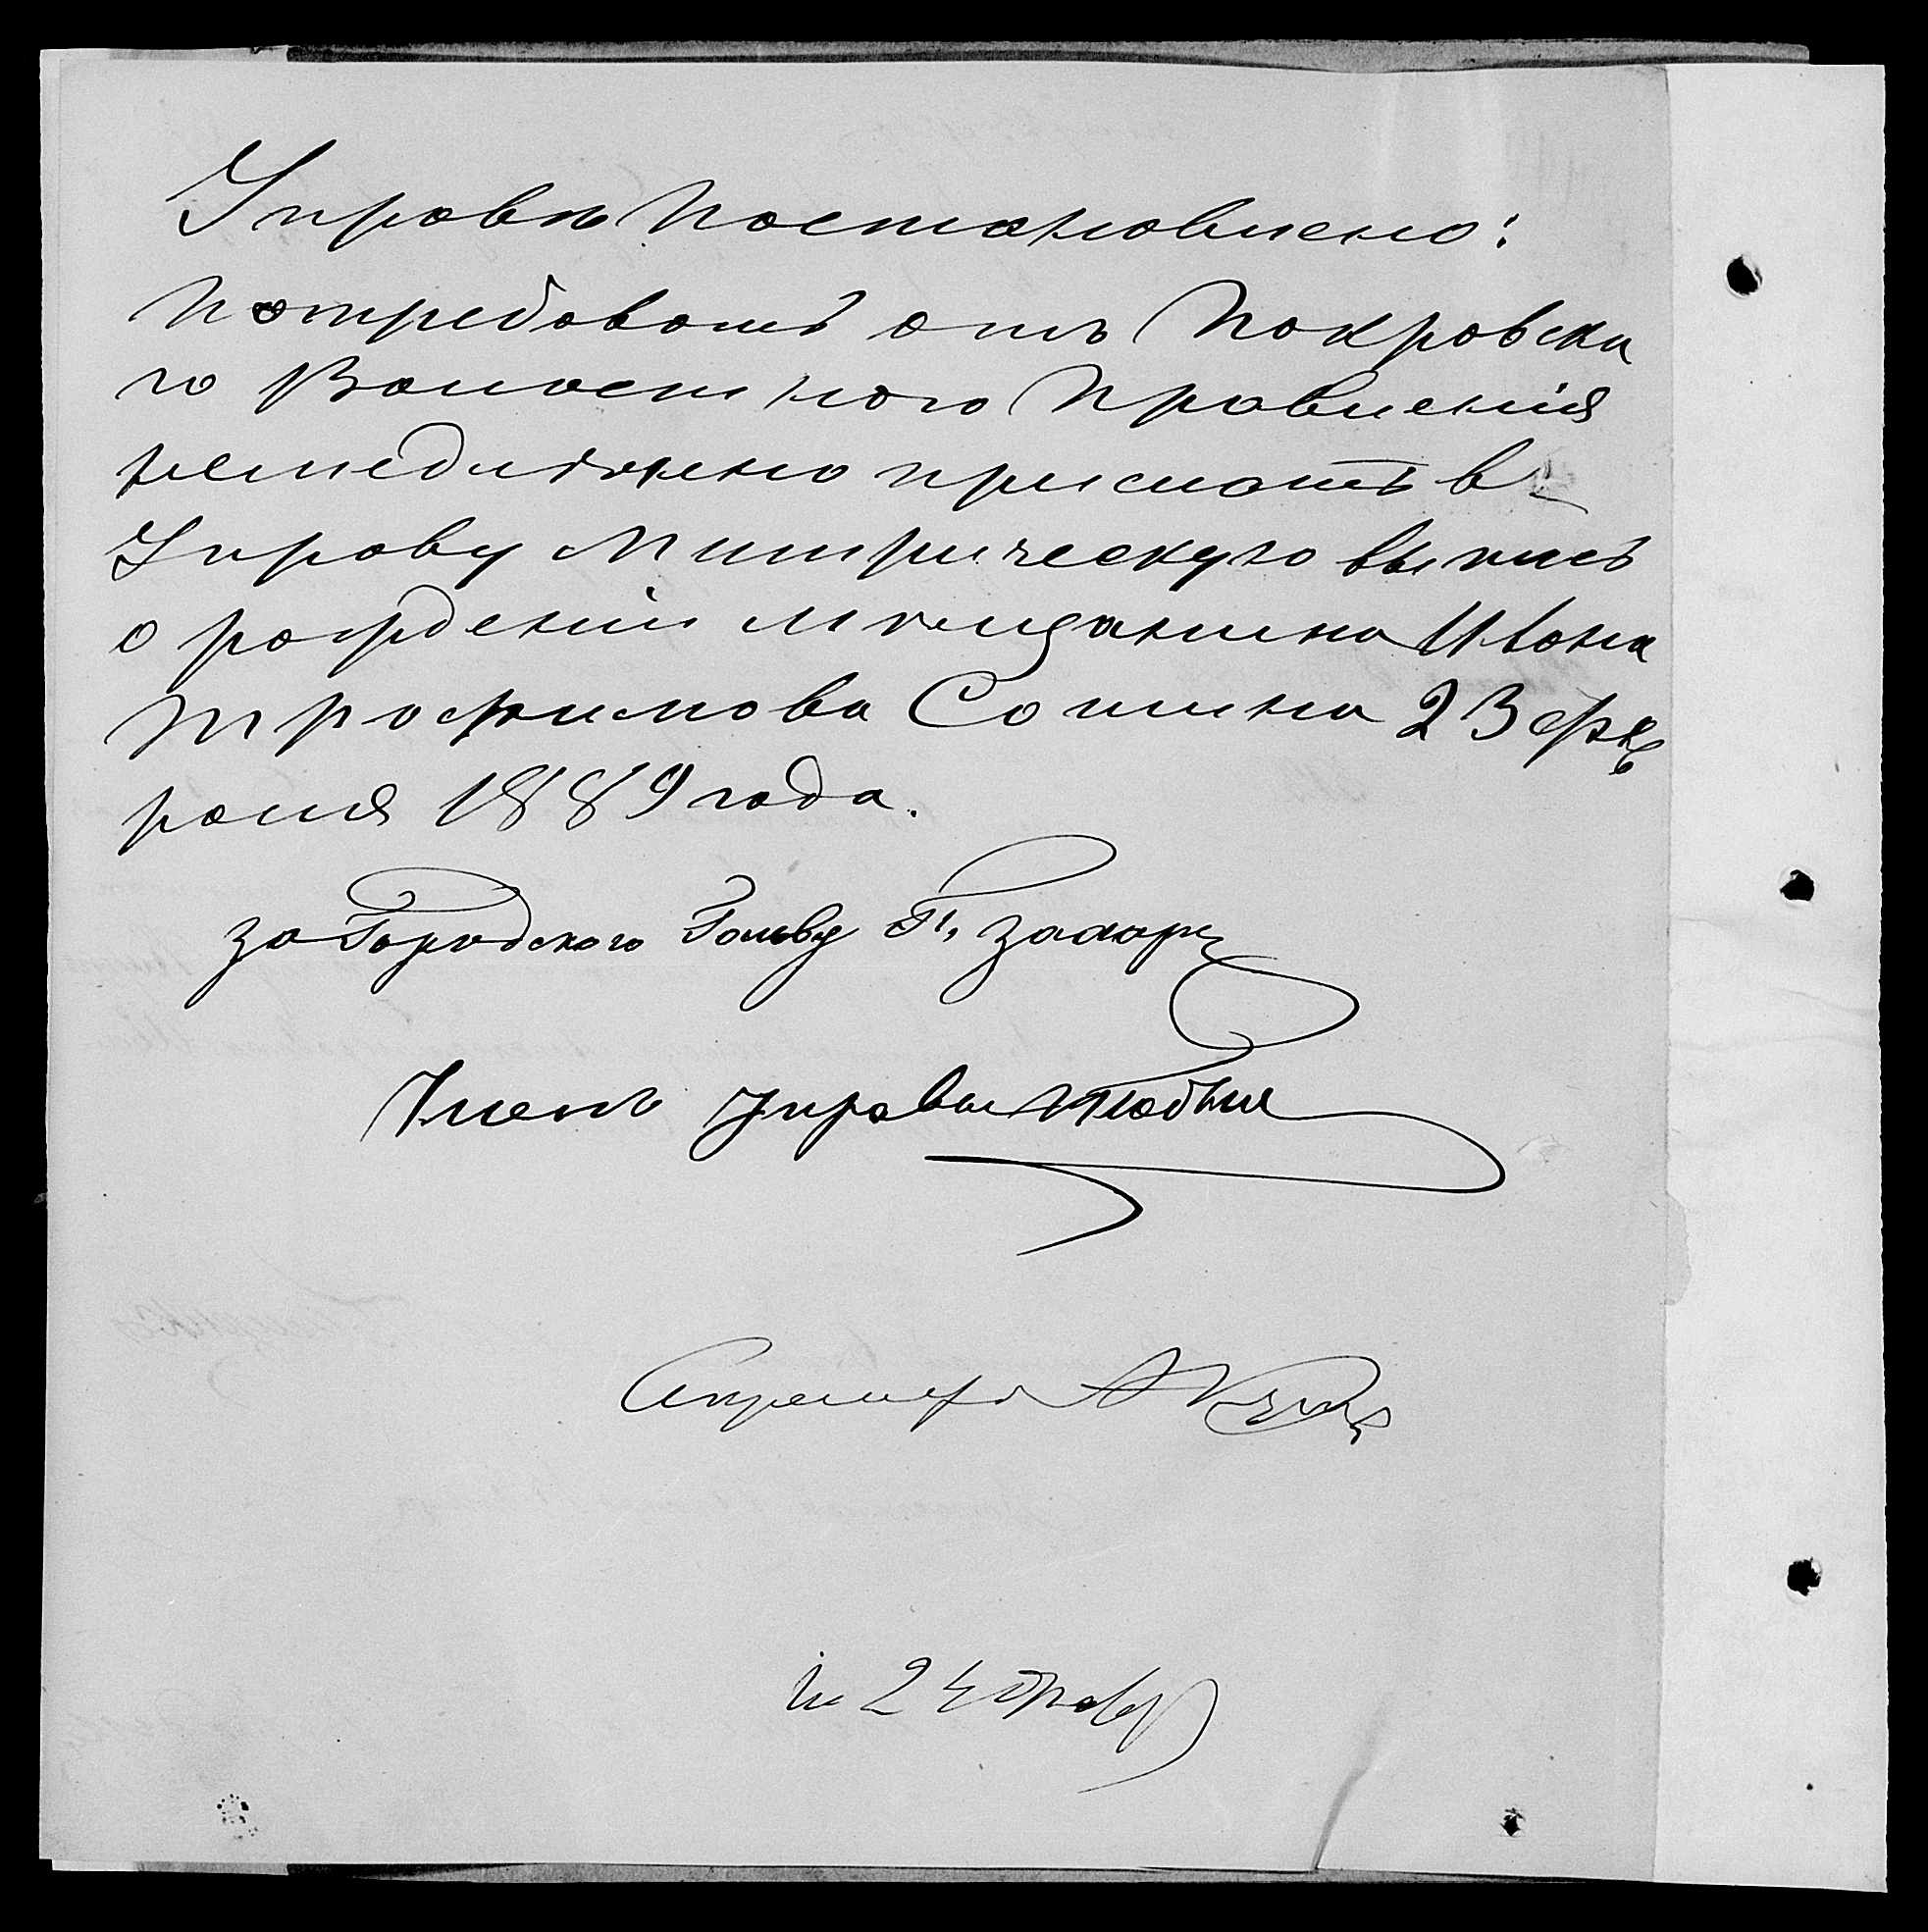 Управѣ постановлено:
потребовать отъ Покровска
го Волостного Правленія
немедленно прислать в
Управу Митрическую выпись
о рожденіи мѣщанина Ивана
Трофимова Сотина 23 Фев
раля 1889 года.
за Городского Голову
Членъ управы
Секретарь
24